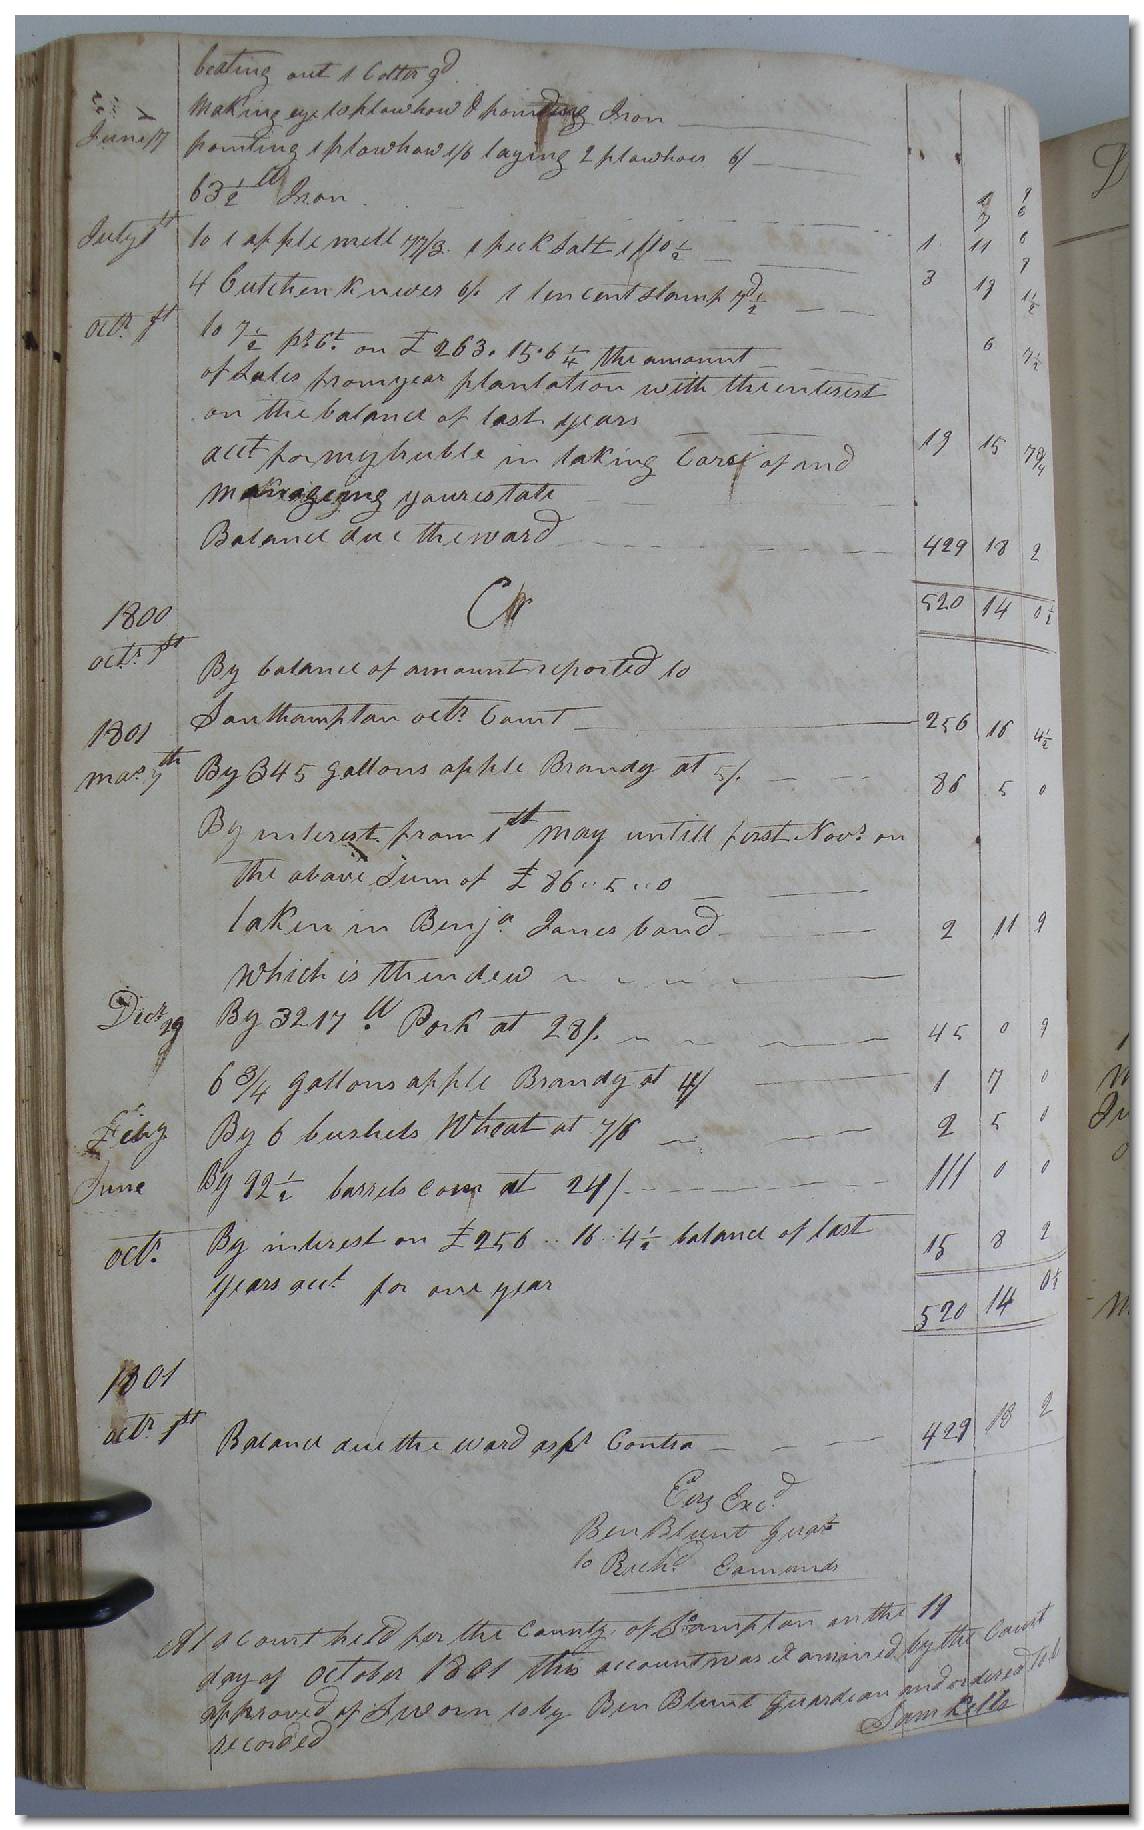 beating out 1 Colter 9d
making eye to plowhow & pointing Iron
June 17 pointing 1 plowhow 1/6 laying 2 plowhoes 6/
63 1/2 lb Iron
July 1st to 1 apple mill 77/3 1 peck Salt 1/10 1/2 1 11
4 Cutchen Knives 6/. 1 ten cent Stamp 7d 1/2 3 19 1 1/2
octr. 1st to 7 1/2 pr. Ct. on £ 263.15.6 1/4 the amount 6 7 1/2
of Sales from year plantation with the interest
on the balance of last years
acct for my truble in taking Care of and 19 15 7 3/4
manageing your estate
Balance due the ward 429 18 2
520 14 0 1/2
Cr
1800
octr. 1st By balance of amount reported to
Southampton octr Court 256 16 4 1/2
1801
May 7th By 345 gallons apple Brandy at 5/. 86 5 0
By interest from 1st may untill first Novr on
the above Sum of £ 86..5..0
taken in Benja. Jones bond 2 11 9
which is then dew
Decr 29 By 3217 lb Pork at 28/. 45 0 9
6 3/4 gallons apple Brandy at 4/ 1 7 0
Feby By 6 bushels Wheat at 7/6 2 5 0
June By 92 1/2 barrels corn at 24/. 111 0 0
octr. By interest on £256..16..4 1/2 balance of last 15 8 2
years acct. for one year
520 14 0 1/2
1801
octr. 1st Balance due the ward as pr Contra 429 18 2
Errs Excd.
Ben Blunt Guar
to Richd. Edmunds
At a Court held for the County of S.ampton on the 19
day of October 1801 this account was Examined by the Court
approved of Sworn to by Ben Blunt Guardean and ordered to be
recorded
Sam Kello